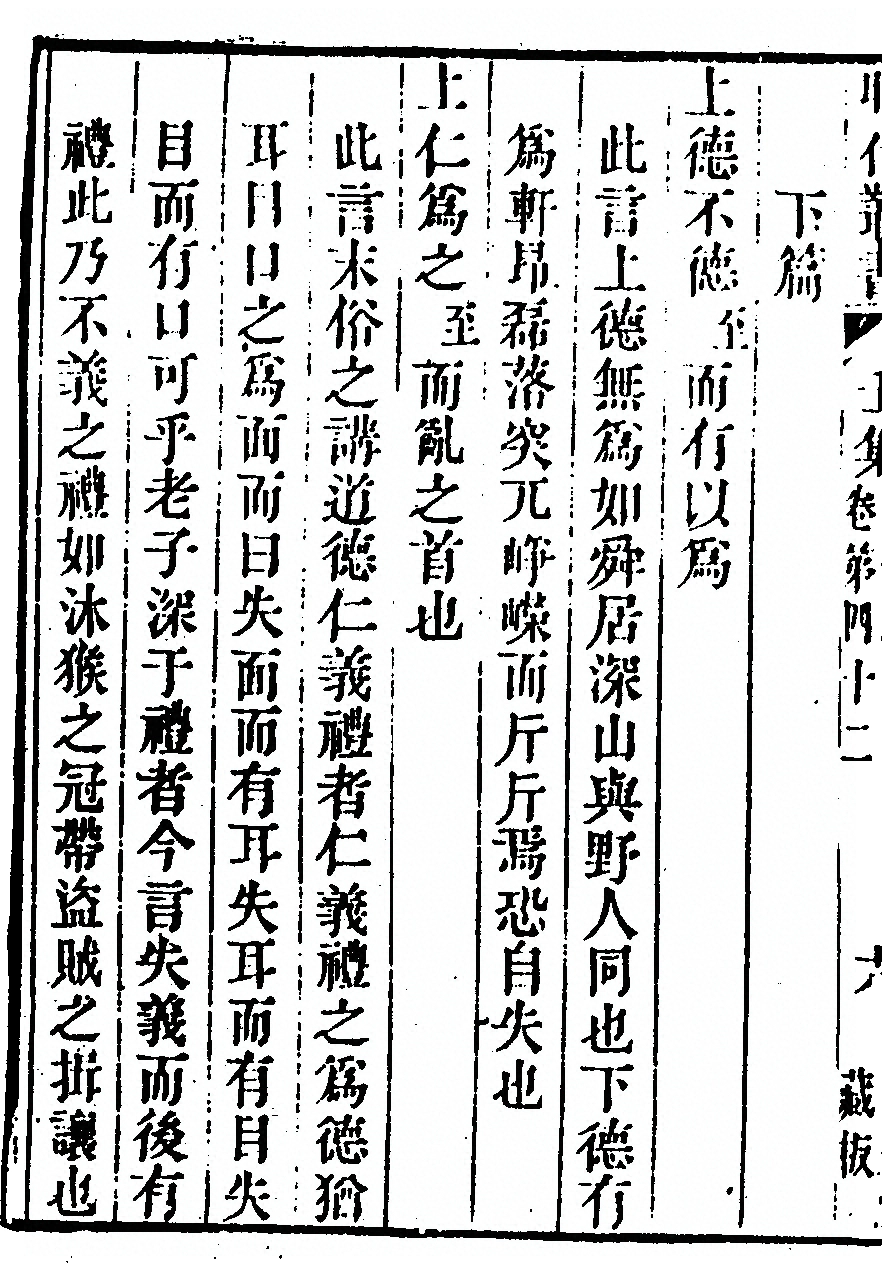 昭代叢書 壬集卷第四十二 六 藏板
下篇
上德不德至而有以爲
此言上德無爲如舜居深山與野人同也下德有
爲軒昂磊落突兀崢嶸而斤斤焉恐自失也
上仁爲之至而亂之首也
此言末俗之講道德仁義禮者仁義禮之爲德猶
耳目口之爲面而曰失面而有耳失耳而有目失
目而有口可乎老子深于禮者今言失義而後有
禮此乃不義之禮如沐猴之冠帶盜賊之揖讓也